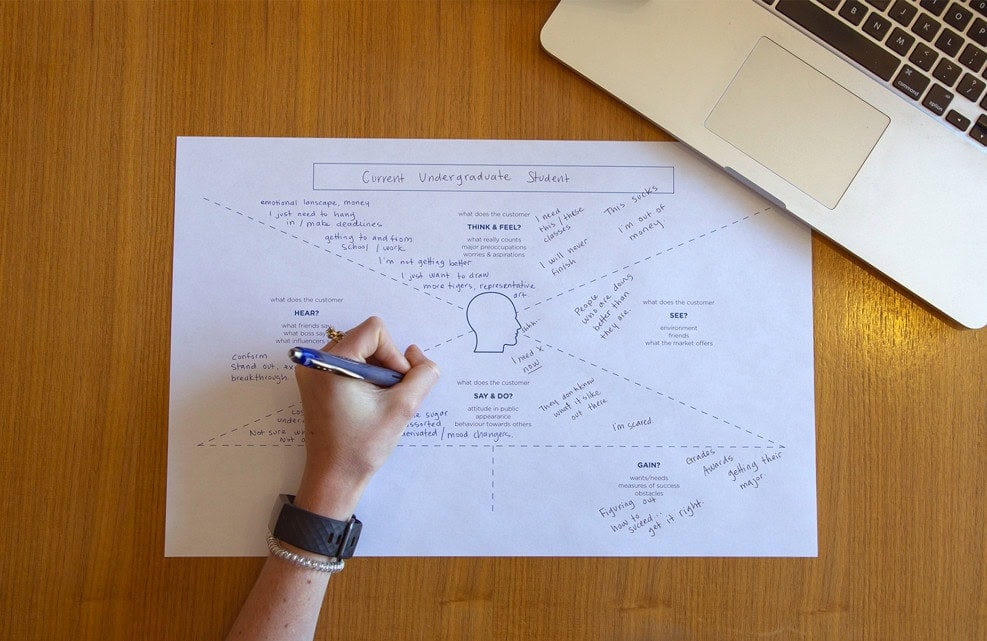 Current Undergraduate Student
emotional lanscape, money
I just need to hang
in / make deadlines
getting to and from
school / work
I'm not getting better
I just want to draw
more tigers, representative
art.
what does the customer
THINK & FEEL?
what really counts
major preoccupations
worries & aspirations
I need
this / these
classes
I will never
finish
This sucks
I'm out of
money.
what does the customer
HEAR?
what friends say
what boss say
what influencers
Conform
Stand out,
breakthrough.
ahh..
I need x
now
People
who are doing
better than
they are.
what does the customer
SEE?
environment
friends
what the market offers
what does the customer
SAY & DO?
attitude in public
appearance
behaviour towards others
sugar
/ mood changers.
They don't know
what it's like
out there
I'm scared.
Not sure
Not
GAIN?
wants/needs
measures of success
obstacles
Grades
Awards
getting their
major.
Figuring out
how to
succeed...
get it right.
B
N
M
J
K
L
O
P
command
option